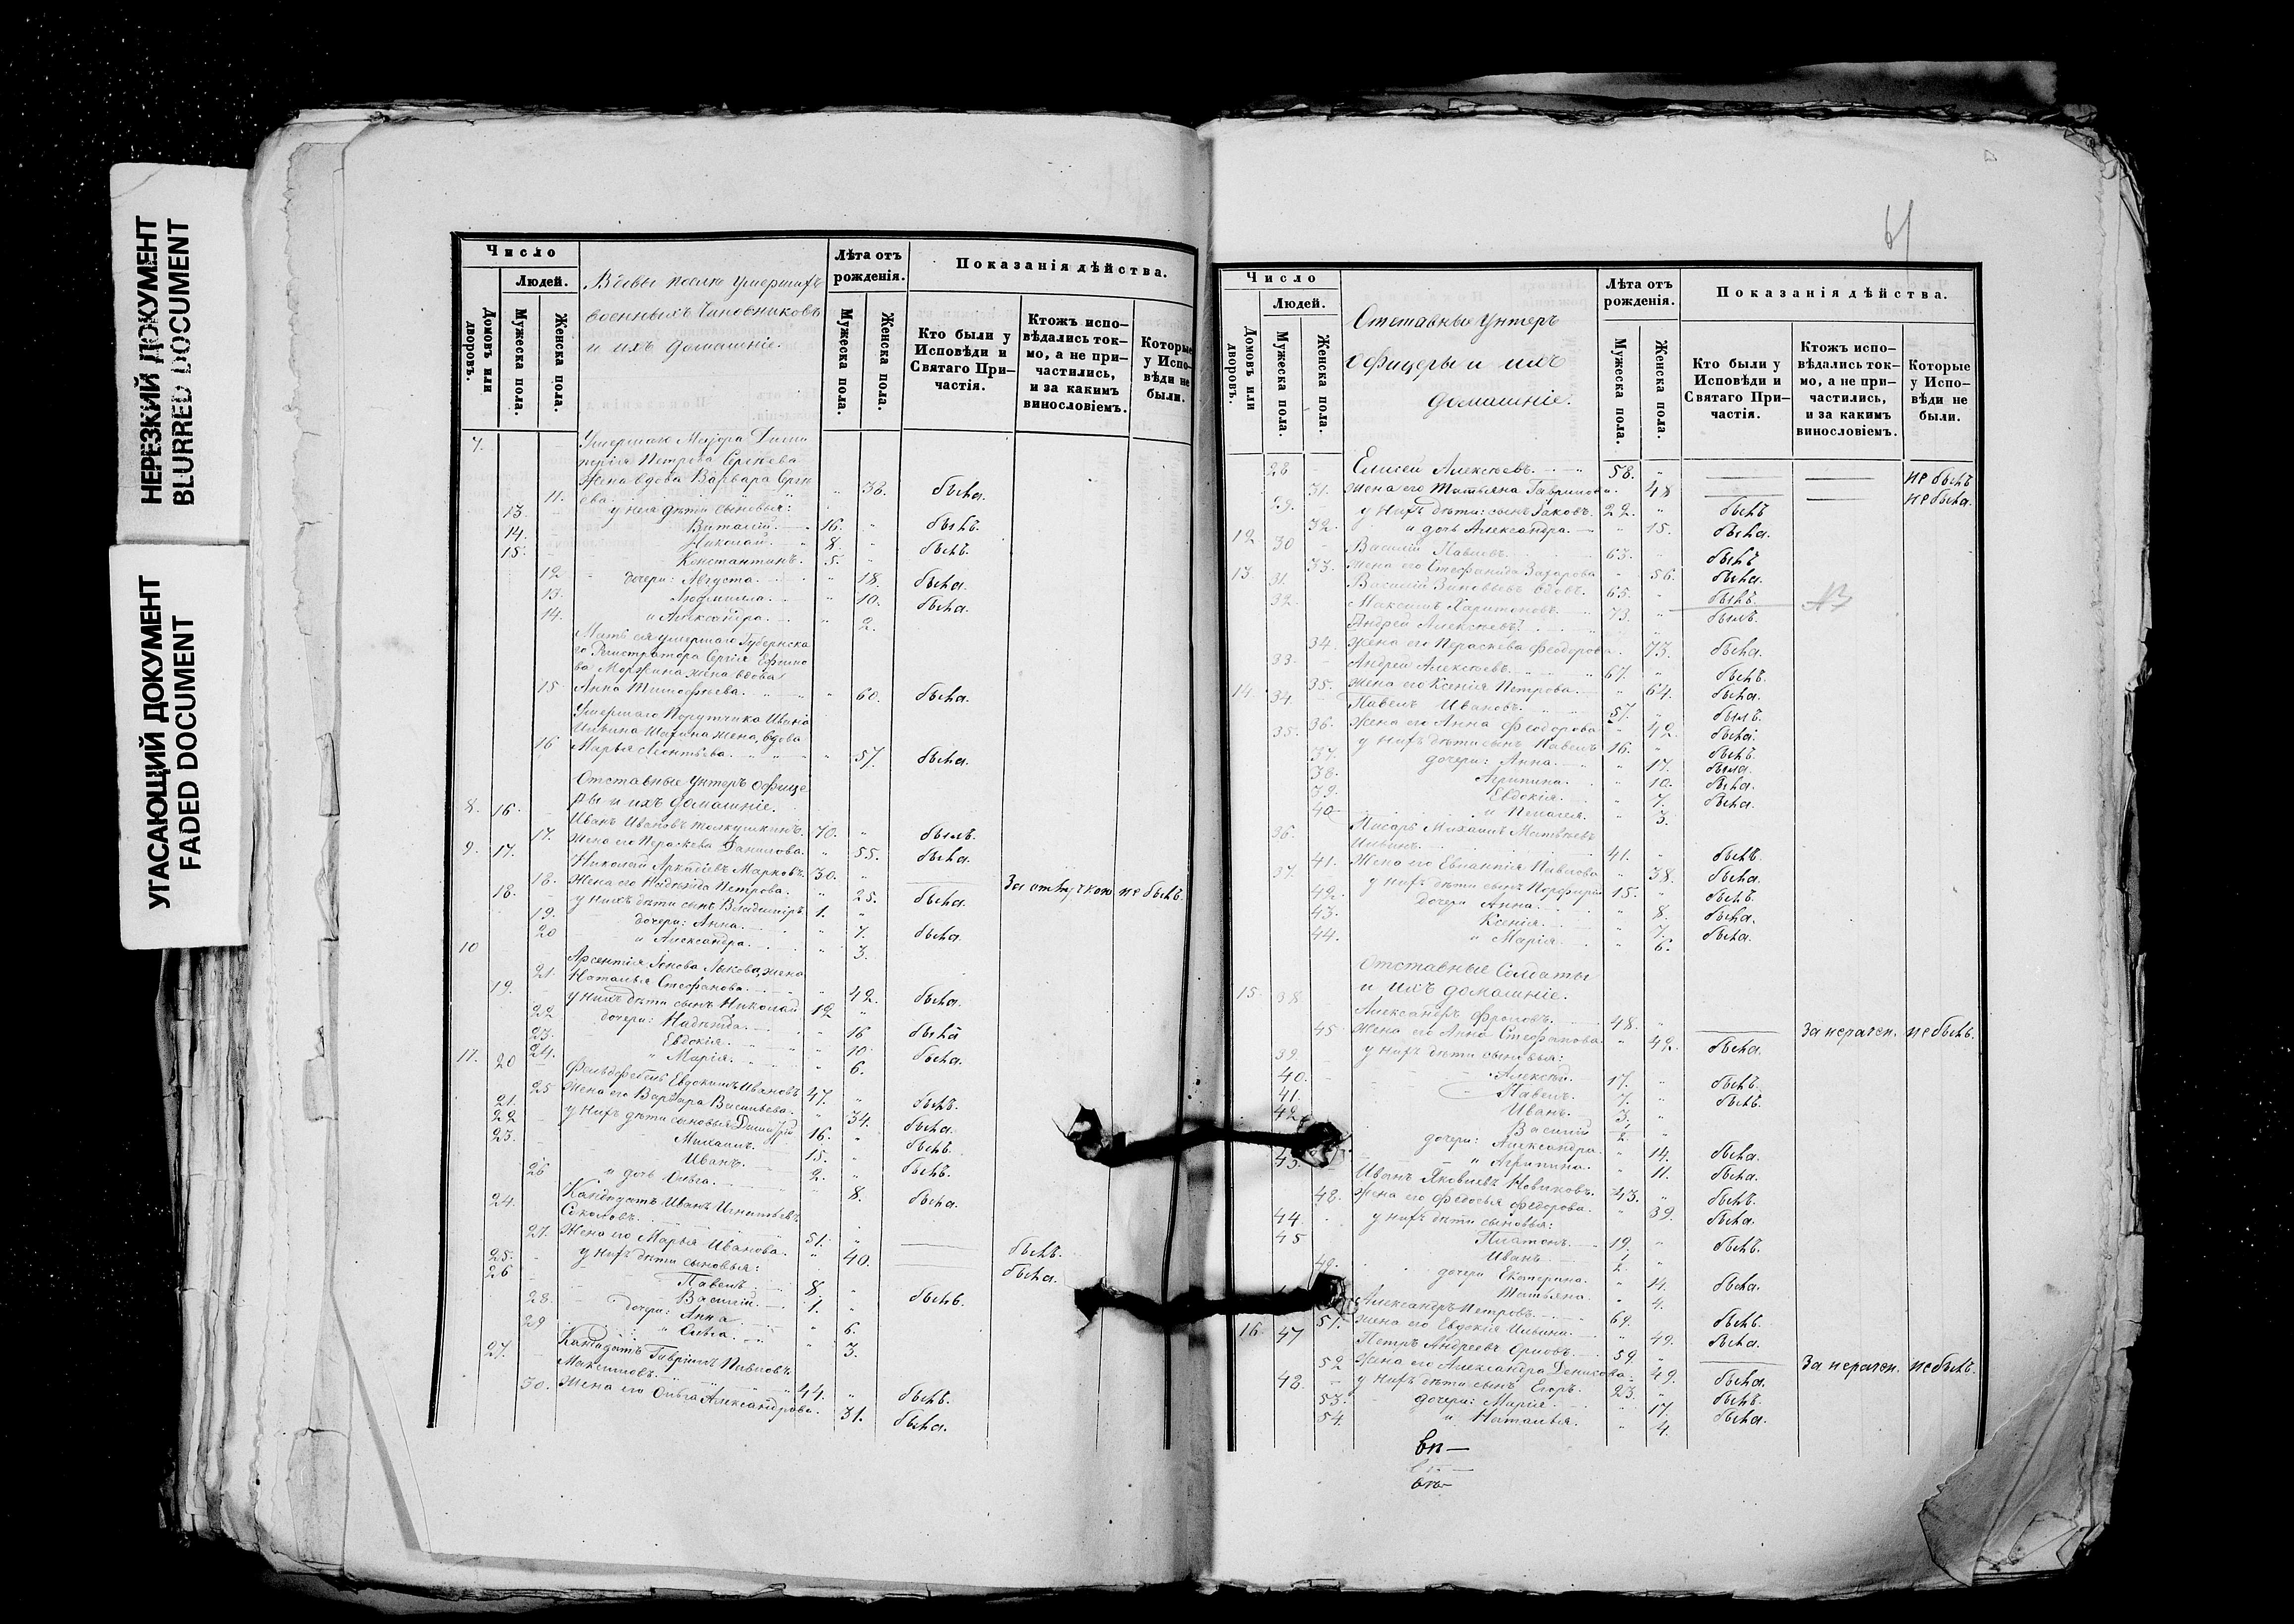 НЕРЕЗКИЙ ДОКУМЕНТ
BLURRED DOCUMENT
УГАСАЮЩИЙ ДОКУМЕНТ
FADED DOCUMENT
Число
Людей.
Домовъ или дворовъ.
Мужеска пола.
Женска пола.
Вдовы после умершихъ
военныхъ Чиновниковъ
и ихъ домашніе.
Лѣта отъ рожденія.
Мужеска пола.
Женска пола.
Показанія дѣйства.
Кто были у Исповѣди и Святаго Причастія.
Ктожъ исповѣдались токмо, а не причастились, и за какимъ винословіемъ.
Которые у Исповѣди не были.
7. Умершаго Маіора Дими
трія Петрова Сергѣева
жена вдова Варвара Сергѣ
11. ева. " 38. была.
у нея дѣти сыновья:
13. Виталій. 16. " былъ.
14. Николай. 8. " былъ.
15. Константинъ. 5. "
12 дочери: Августа. " 18. была.
13. Людмилла. " 10. была.
14. и Александра. " 2.
Мать ея умершаго Губернска
го Регистратора Сергія Ефимо
ва жена вдова
15 Анна Тимофѣева. " 60. была.
Умершаго Порутчика Ивана
жена, вдова
16 Марья Леонтьева. " 57. была.
Отставные Унтеръ Офице
ры и ихъ домашніе.
8. 16. Иванъ Ивановъ Толкушкинъ. 70. " былъ.
17. Жена его Параскева Данилова. " 55. была.
9. 17. Николай Аркадіевъ Марковъ. 30. " За отлучкою не былъ.
18. Жена его Надежда Петрова. " 25. была.
18. у нихъ дѣти сынъ Владимиръ. 1. "
19. дочери: Анна. " 7. была.
20 и Александра. " 3.
10 Арсентія Лыкова, жена
21. Наталья Стефанова. " 42. была.
19. у нихъ дѣти сынъ Николай 12 "
22 дочери: Надежда. " 16 была
23. Евдокія. " 10. была.
24. " Марія. " 6.
11. 20 Фельдфебель Евдокимъ Ивановъ 47. " былъ.
25 Жена его Варвара Васильева. " 34. была.
21. у нихъ дѣти сыновья Димитрій 16. " былъ.
22 Михаилъ. 15. " былъ.
23. Иванъ. 2. "
26 и дочь Ольга. " 8. была.
24. Кандидатъ Иванъ Игнатьевъ
Соколовъ. 51. " былъ.
27. Жена его Марья Иванова. " 40. была.
у нихъ дѣти сыновья:
25. Павелъ. 8. " былъ.
26 Василій. 1. "
28. дочери: Анна. " 6.
29 " Ольга. " 3.
27. Кандидатъ Гавріилъ Павловъ
Максимовъ. 44. " былъ.
30. Жена его Ольга Александрова. " 31. была.
61
Число
Людей.
Домовъ или дворовъ.
Мужеска пола.
Женска пола.
Отставные Унтеръ
Офицеры и ихъ
домашніе.
Лѣта отъ рожденія.
Мужеска пола.
Женска пола.
Показанія дѣйства.
Кто были у Исповѣди и Святаго Причастія.
Ктожъ исповѣдались токмо, а не причастились, и за какимъ винословіемъ.
Которые у Исповѣди не были.
28 Елисей Алексѣевъ. 58. " не былъ
31. Жена его Татьяна Гаврилова. " 48 не была.
29. у нихъ дѣти: сынъ Іаковъ. 22. " былъ
32. и дочь Александра. " 15. была.
12 30 Василій Павловъ. 63. " былъ
33. Жена его Стефанида Захарова " 56. была.
13 31. Василій Зиновьевъ вдовъ. 65. " былъ.
32. Максимъ Харитоновъ. 73. " былъ.
Андрей Алексѣевъ.
34. Жена его Параскева Феодорова. " 73. была.
33. Андрей Алексѣевъ. 67. " былъ.
35. Жена его Ксенія Петрова. " 64. была.
14. 34. Павелъ Ивановъ. 57. " былъ.
36. Жена его Анна Феодорова " 42. была.
35. у нихъ дѣти сынъ Павелъ 16. " былъ.
37. дочери: Анна. " 17. была.
38. Агрипина. " 10. была.
39. Евдокія. " 7. была.
40 и Пелагея. " 3.
36. Писарь Михаилъ Матвѣевъ
Ильинъ. 41. " былъ.
41. Жена его Евлампія Павлова " 38. была.
37. у нихъ дѣти сынъ Порфирій 15. " былъ.
42. дочери Анна. " 8. была.
43. Ксенія. " 7. была.
44. " Марія. " 6.
Отставные Солдаты
и ихъ домашніе.
15. 38 Александръ Фроловъ. 48. " За нерачен. не былъ.
45 Жена его Анна Стефанова. " 42. была.
у нихъ дѣти сыновья:
39. Алексѣй. 17. " былъ.
40. Павелъ. 7. " былъ.
41. Иванъ. 3. "
42 Василій "
дочери: Александра. " 14. была.
" Агрипина. " 11. была.
43. Иванъ Яковлевъ Новиковъ. 43. " былъ.
48. Жена его Федосья Федорова. " 39. была.
у нихъ дѣти сыновья:
44. Платонъ. 19. " былъ.
45 Иванъ.
49. дочери Екатерина. " 14. была.
Татьяна. " 4.
Александръ Петровъ. 69. " былъ.
51. Жена его Евдокія Ильина. " 49. была.
16. 47 Петръ Андреевъ Орловъ. 59. " За нерачен. не былъ.
52 Жена его Александра Денисова. " 49. была.
48. у нихъ дѣти сынъ Егоръ. 23. " былъ.
53. дочери: Марія. " 17. была.
54. и Наталья. " 4.